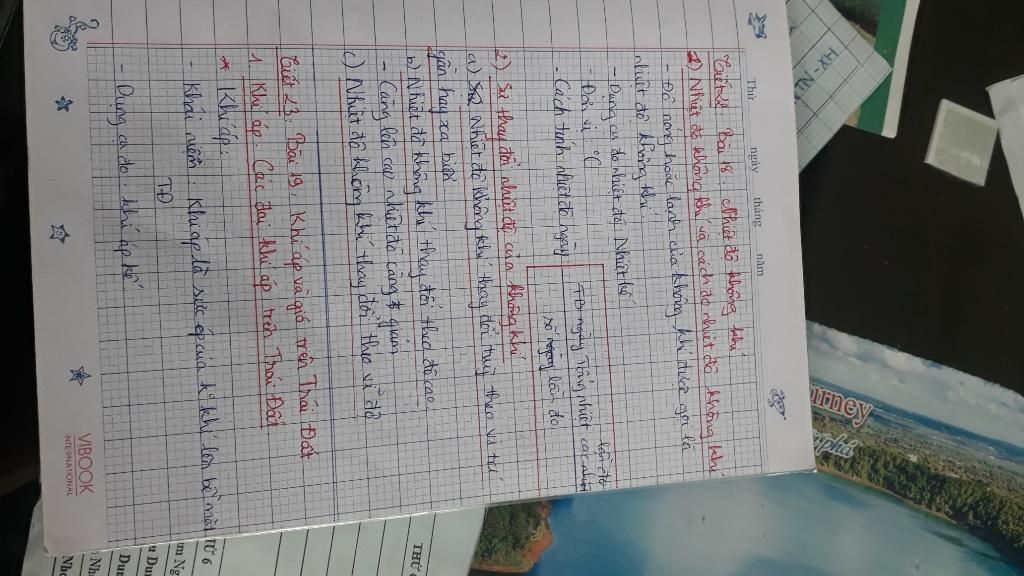 Thứ ngày tháng năm
Tiết 22: Bài 18: Nhiệt độ không khí
1) Nhiệt độ không khí và cách đo nhiệt độ không khí
- Độ nóng hoặc lạnh của không khí được gọi là
nhiệt độ không khí
- Dụng cụ đo nhiệt độ: Nhiệt kế
- Đơn vị: °C
- Cách tính nhiệt độ ngày
TBN ngày: Tổng nhiệt các
lần đo
số ngày lần đo
2) Sự thay đổi nhiệt độ của không khí
a) Nhiệt độ không khí thay đổi tuỳ theo vị trí
gần hay xa biển
b) Nhiệt độ không khí thay đổi theo độ cao:
- Càng lên cao nhiệt độ càng giảm
c) Nhiệt độ không khí thay đổi theo vĩ độ
Tiết 23: Bài 19: Khí áp và gió trên Trái Đất
1. Khí áp. Các đai khí áp trên Trái Đất
* Khí áp:
- Khái niệm: Khí áp là sức ép của k² khí lên bề mặt
TĐ
- Dụng cụ đo: khí áp kế
VIBOOK
INTERNATIONAL
TN - XH
urney
THỨ 6